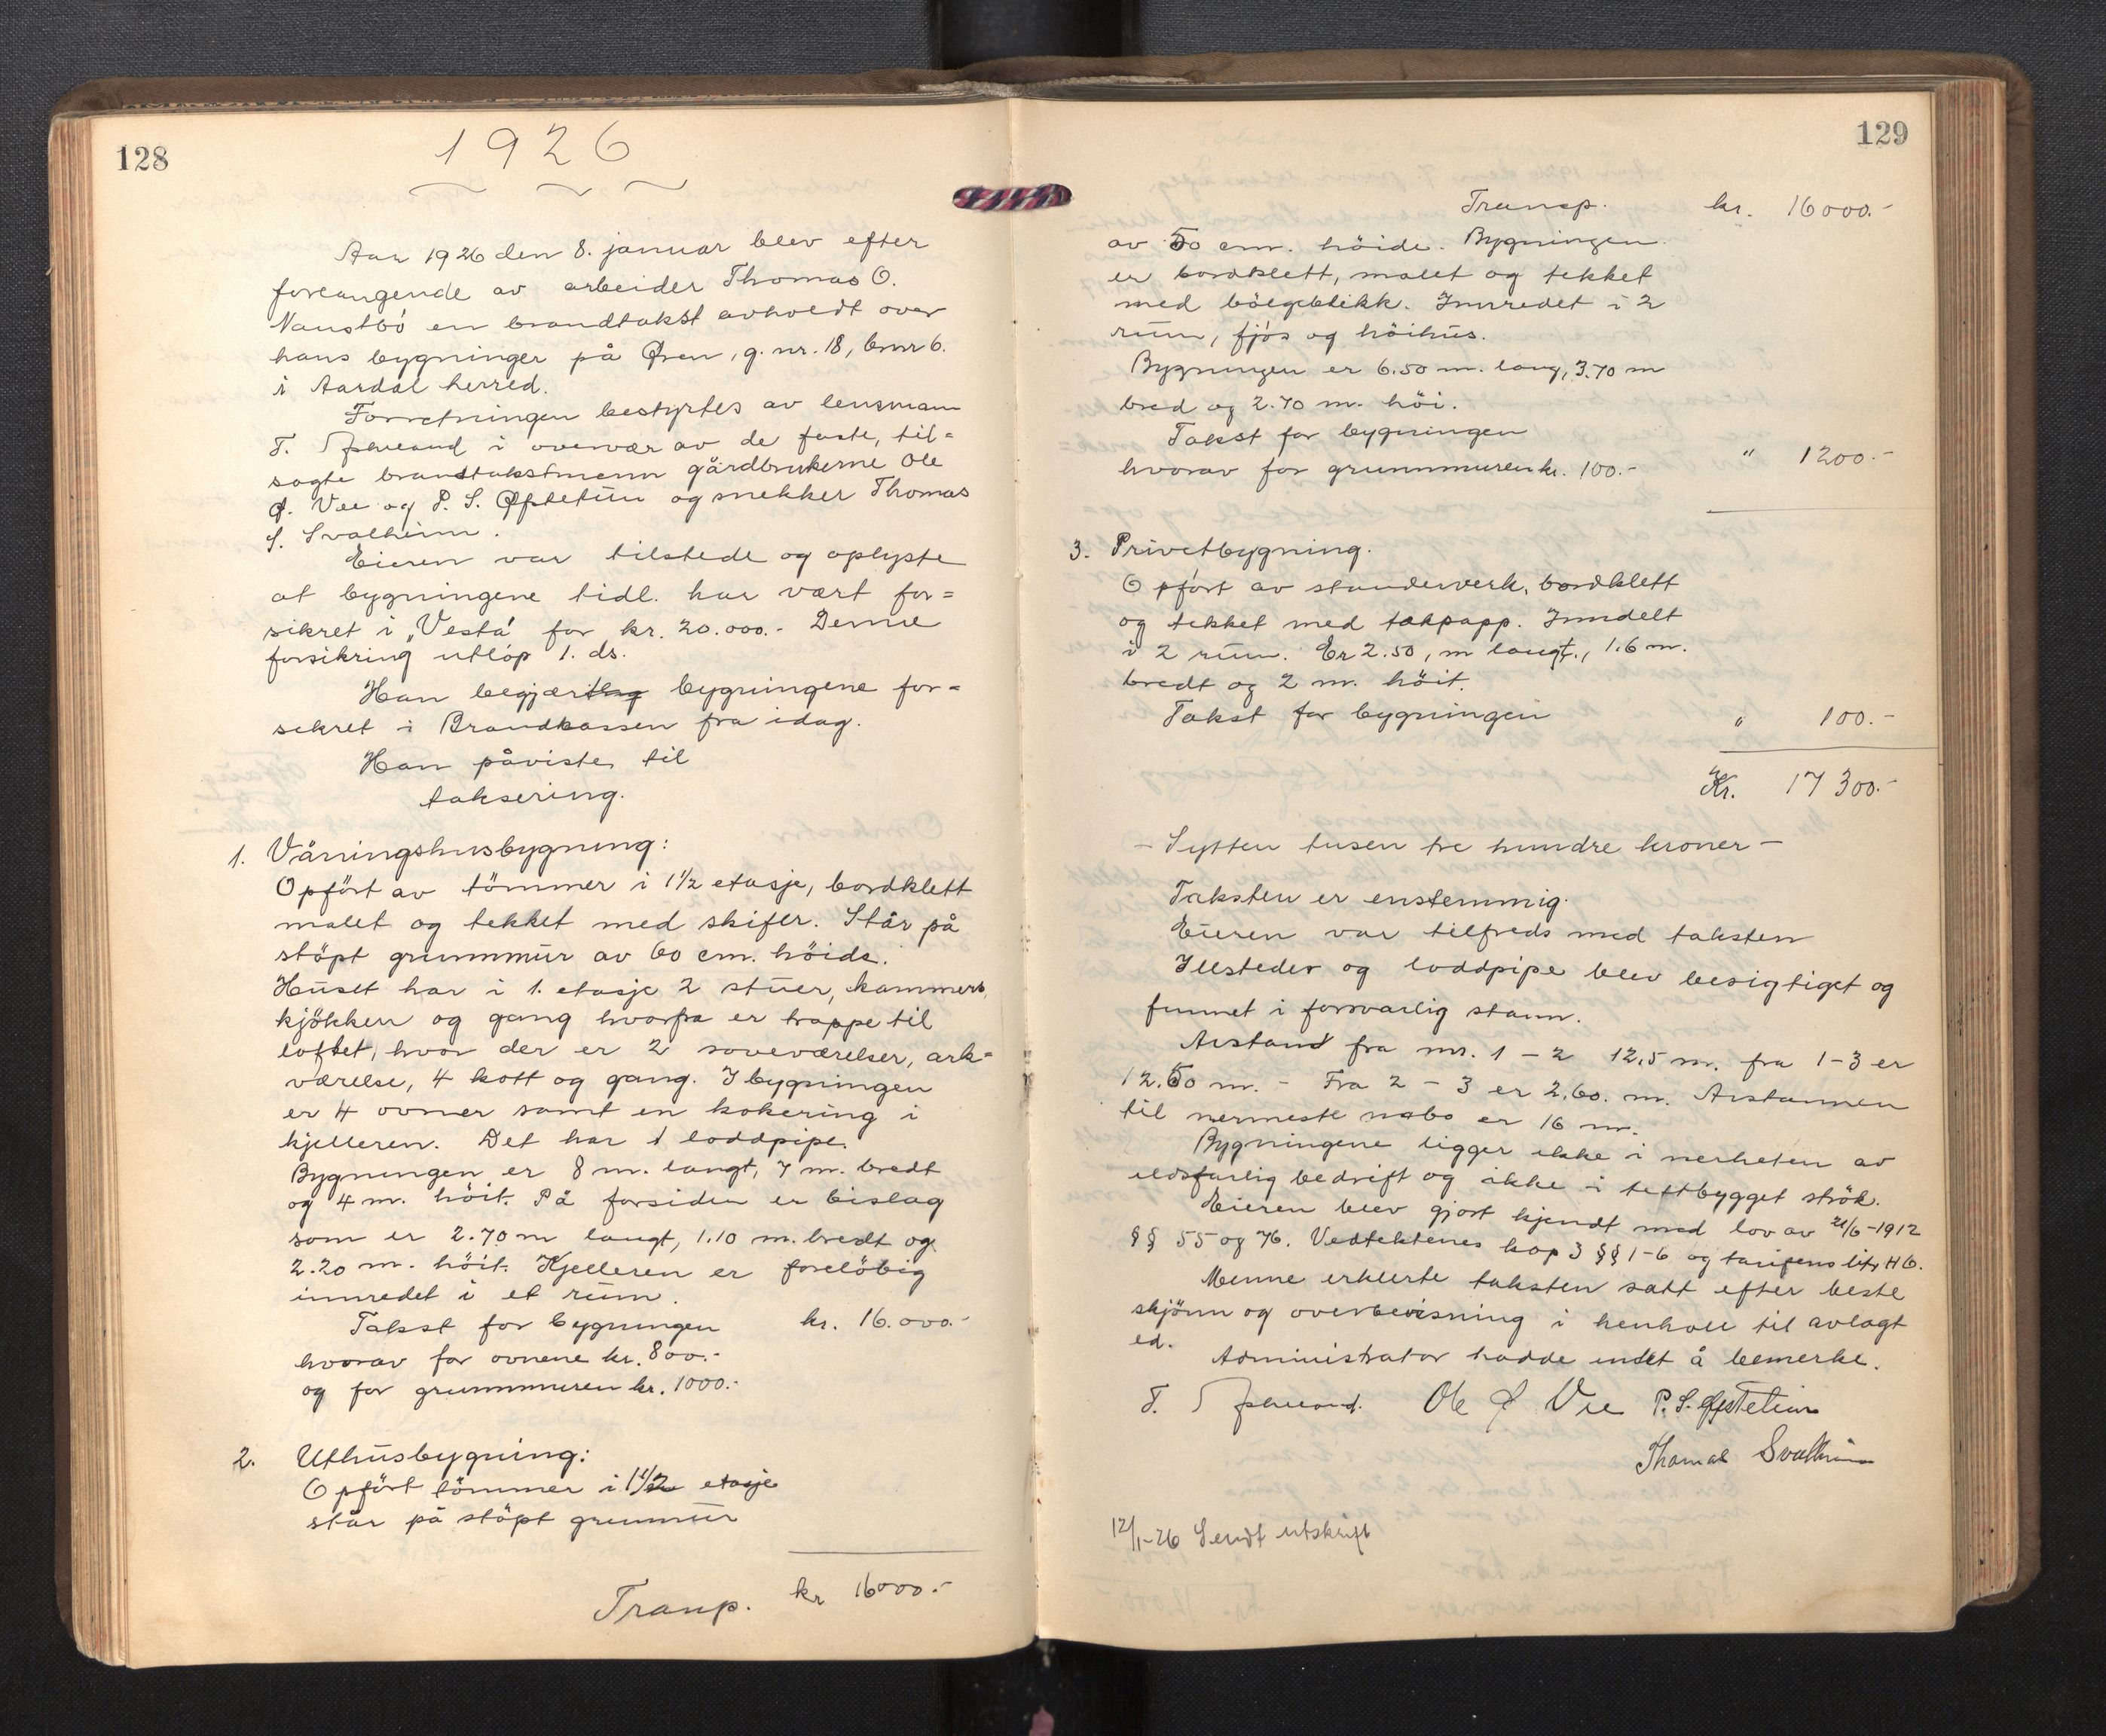 128
1926
Aar 1926 den 8. januar blev efter
forlangende av arbeider Thomas O.
Naustbö en brandtakst avholdt over
hans bygninger på Øren, g. nr. 18, bnr 6.
i Aardal herred.
Forretningen bestyrtes av lensmann
T. i overvær av de faste, til=
sagte brandtakstmenn gårdbrukerne Ole
Ø. Vee og P. S. Øfstetun og snekker Thomas
S. Svalheim.
Eieren var tilstede og oplyste
at bygningene tidl. har vært for=
sikret i „Vesta" for kr. 20.000.- Denne
forsikring utlöp 1. ds.
Han begjær bygningene for=
sikret i Brandkassen fra idag.
Han påviste til
taksering.
1. Våningshusbygning:
Opfört av tömmer i 1½ etasje, bordklett
malet og tekket med skifer. Står på
stöpt grunnmur av 60 cm. höide.
Huset har i 1. etasje 2 stuer, kammers,
kjökken og gang hvorfra er trappe til
loftet, hvor der er 2 soveværelser, ark=
værelse, 4 kott og gang. I bygningen
er 4 ovner samt en kokering i
kjelleren. Det har 1 loddpipe.
Bygningen er 8 m. langt, 7 m. bredt
og 4 m. höit. På forsiden er bislag
som er 2.70 m langt, 1.10 m. bredt og
2.20 m. höit. Kjelleren er forelöbig
innredet i et rum.
Takst for bygningen kr. 16.000.-
hvorav for ovnene kr. 800.-
og for grunnmuren kr. 1000.-
2. Uthusbygning:
Opfört tömmer i 1½ etasje
står på stöpt grunnmur
Transp. kr 16000.-
129
Transp. kr. 16000.-
av 50 cm. höide. Bygningen
er bordklett, malet og tekket
med bölgeblikk. Innredet i 2
rum, fjös og höihus.
Bygningen er 6.50 m. lang, 3.70 m
bred og 2.70 m. höi.
Takst for bygningen
hvorav for grunnmuren kr. 100.- " 1200.-
3. Privetbygning.
Opfört av stenderverk, bordklett
og tekket med takpapp. Inndelt
i 2 rum. Er 2.50, m langt., 1.6 m.
bredt og 2 m. höit.
Takst for bygningen " 100.-
Kr. 17300.-
- Sytten tusen tre hundre kroner -
Taksten er enstemmig.
Eieren var tilfreds med taksten
Illsteder og loddpipe blev besigtiget og
funnet i forsvarlig stann.
Avstand fra nr. 1 - 2 12,5 m. fra 1-3 er
12.50 m. - Fra 2 - 3 er 2,60. m. Avstannen
til nermeste nabo er 16 m.
Bygningene ligger ikke i nerheten av
eldsfarlig bedrift og ikke i tettbygget strök.
Eieren blev gjort kjendt med lov av 21/6-1912
§§ 55 og 76. Vedtektenes kap 3 §§ 1-6 og tarifens litr H 6.
Menne erklerte taksten satt efter beste
skjönn og overbevisning i henholl til avlagt
ed.
Administrator hadde intet å bemerke.
T. Ole Ø Vee P. S. Øfstetun
Thomas Svalheim
12/1-26 Sendt utskrift